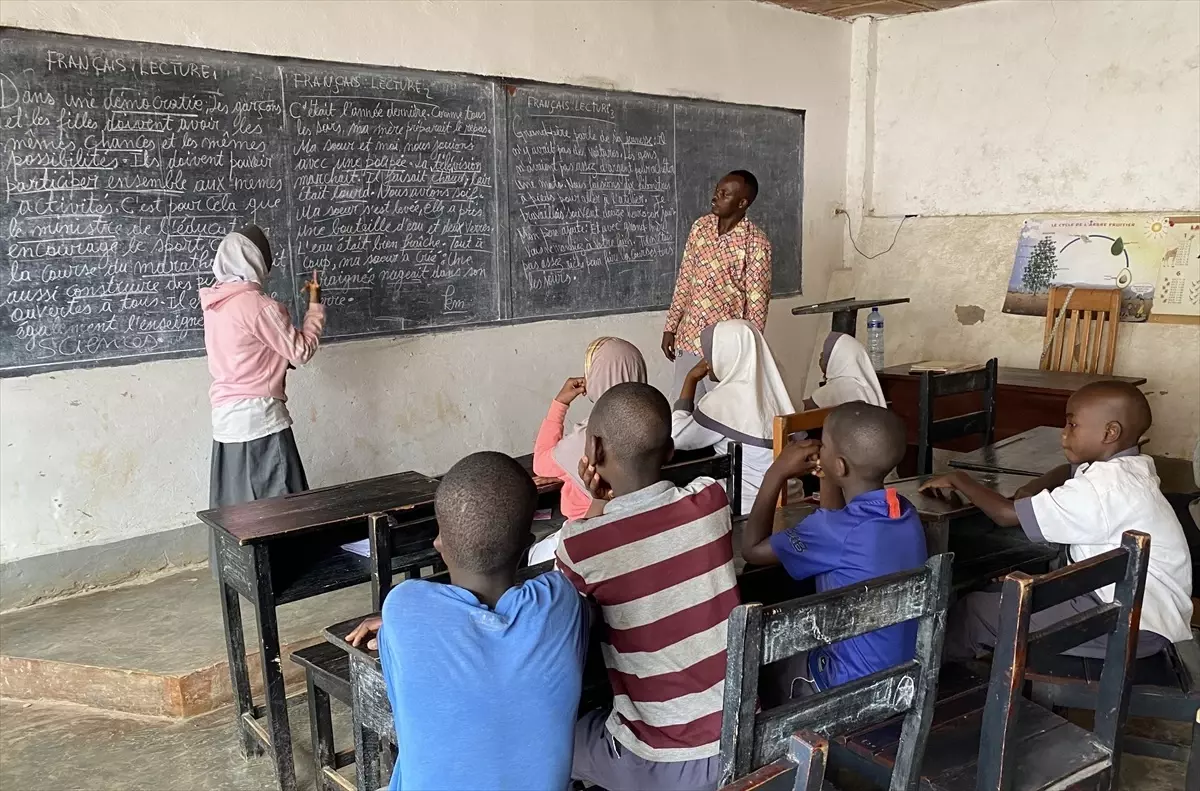 FRANÇAIS : LECTURE 1
Dans une démocratie, les garçons
et les filles doivent avoir les
mêmes chances et les mêmes
possibilités. Ils doivent pouvoir
participer ensemble aux mêmes
activités. C'est pour cela que
le ministre de l'éduca
encourage le sport
la course du marath
aussi construire des
ouvertes à tous. Il e
également l'enseigne
Sciences.
FRANÇAIS : LECTURE 2
C'était l'année dernière. Comme tous
les soirs, ma mère préparait le repas.
Ma sœur et moi, nous jouions
avec une poupée. La télévision
marchait. Il faisait chaud, l'air
était lourd. Nous avions soif.
Ma sœur s'est levée, elle a pris
une bouteille d'eau et deux verres.
L'eau était bien fraîche. Tout à
coup, ma sœur a crié : Une
araignée nageait dans son
verre.
FRANÇAIS : LECTURE
Grand-père parle de sa jeunesse : Il
n'y avait pas des voitures. Les gens
n'avaient pas assez d'argent pour acheter
une moto. Nous faisions des kilomètres
à pieds pour aller à l'atelier.
LE CYCLE DE L'ARBRE FRUITIER